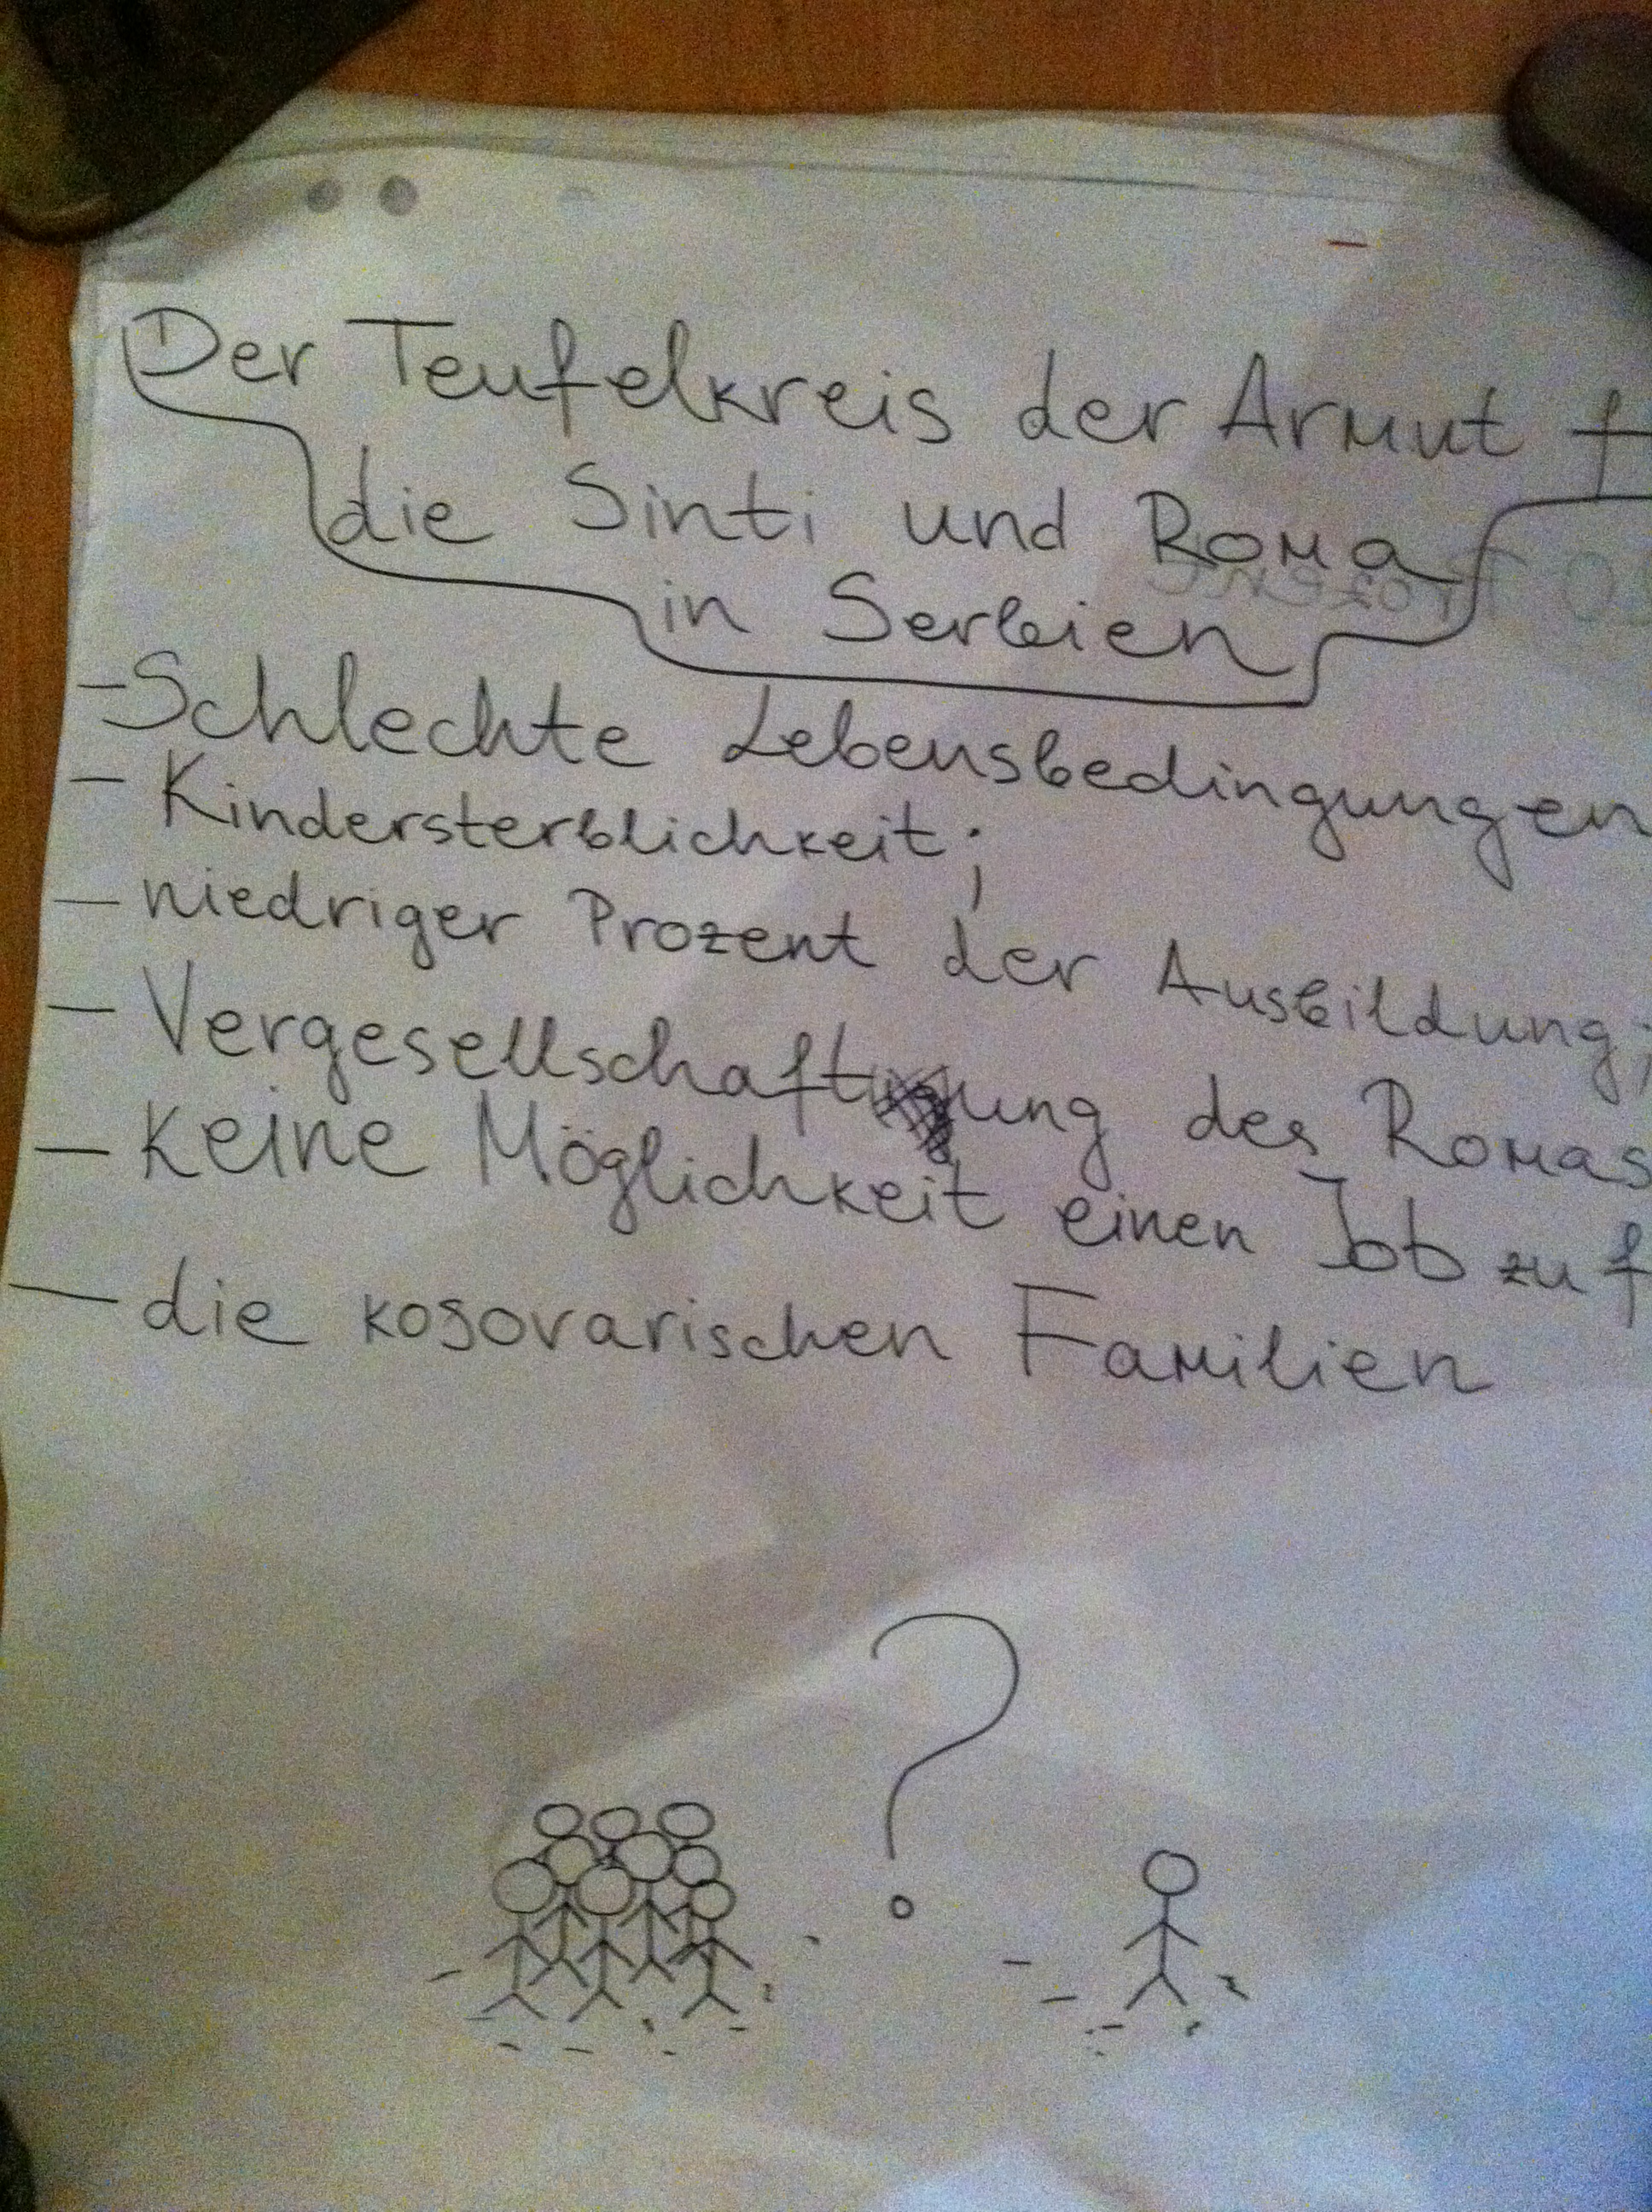 Der Teufelkreis der Armut f
die Sinti und Roma
in Serbien
- Schlechte Lebensbedingungen
- Kindersterblichkeit;
- niedriger Prozent der Ausbildung;
- Vergesellschaftung des Romas
- keine Möglichkeit einen Job zu f
- die kosovarischen Familien
?